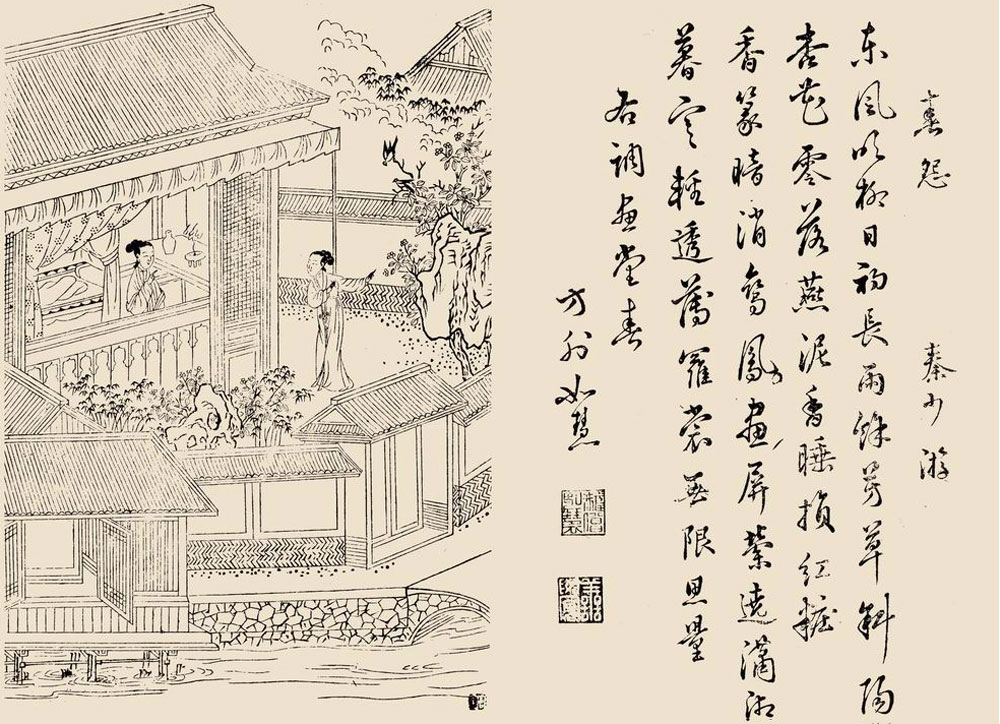 春怨 秦少游
東風吹柳日初長雨餘芳草斜陽
杏花零落燕泥香睡損紅粧
香篆暗消鸞鳳畫屏縈遶瀟湘
暮寒輕透薄羅裳無限思量
右調畫堂春
方外如慧